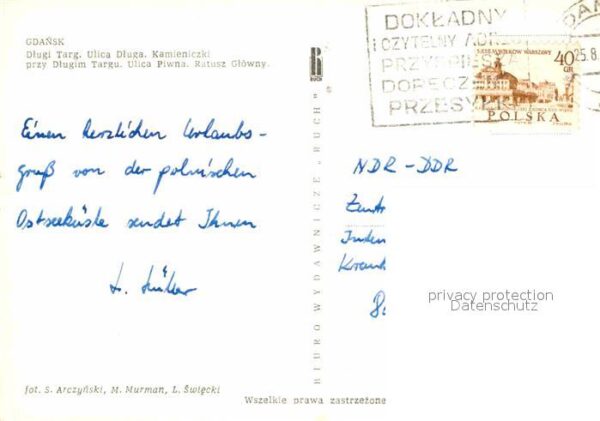 GDAŃSK
Długi Targ. Ulica Długa. Kamieniczki
przy Długim Targu. Ulica Piwna. Ratusz Główny.
Einen herzlichen Urlaubs-
gruß von der polnischen
Ostseeküste sendet Ihnen
fot. S. Arczyński, M. Murman, L. Święcki
RUCH
BIURO WYDAWNICZE „RUCH"
Wszelkie prawa zastrzeżone
DOKŁADNY
I CZYTELNY ADRES
PRZYSPIESZA
DORĘCZENIE
PRZESYŁKI
25.8
SIEDEM WIEKÓW WARSZAWY
40
GR
POLSKA
NDR-DDR
privacy protection
Datenschutz